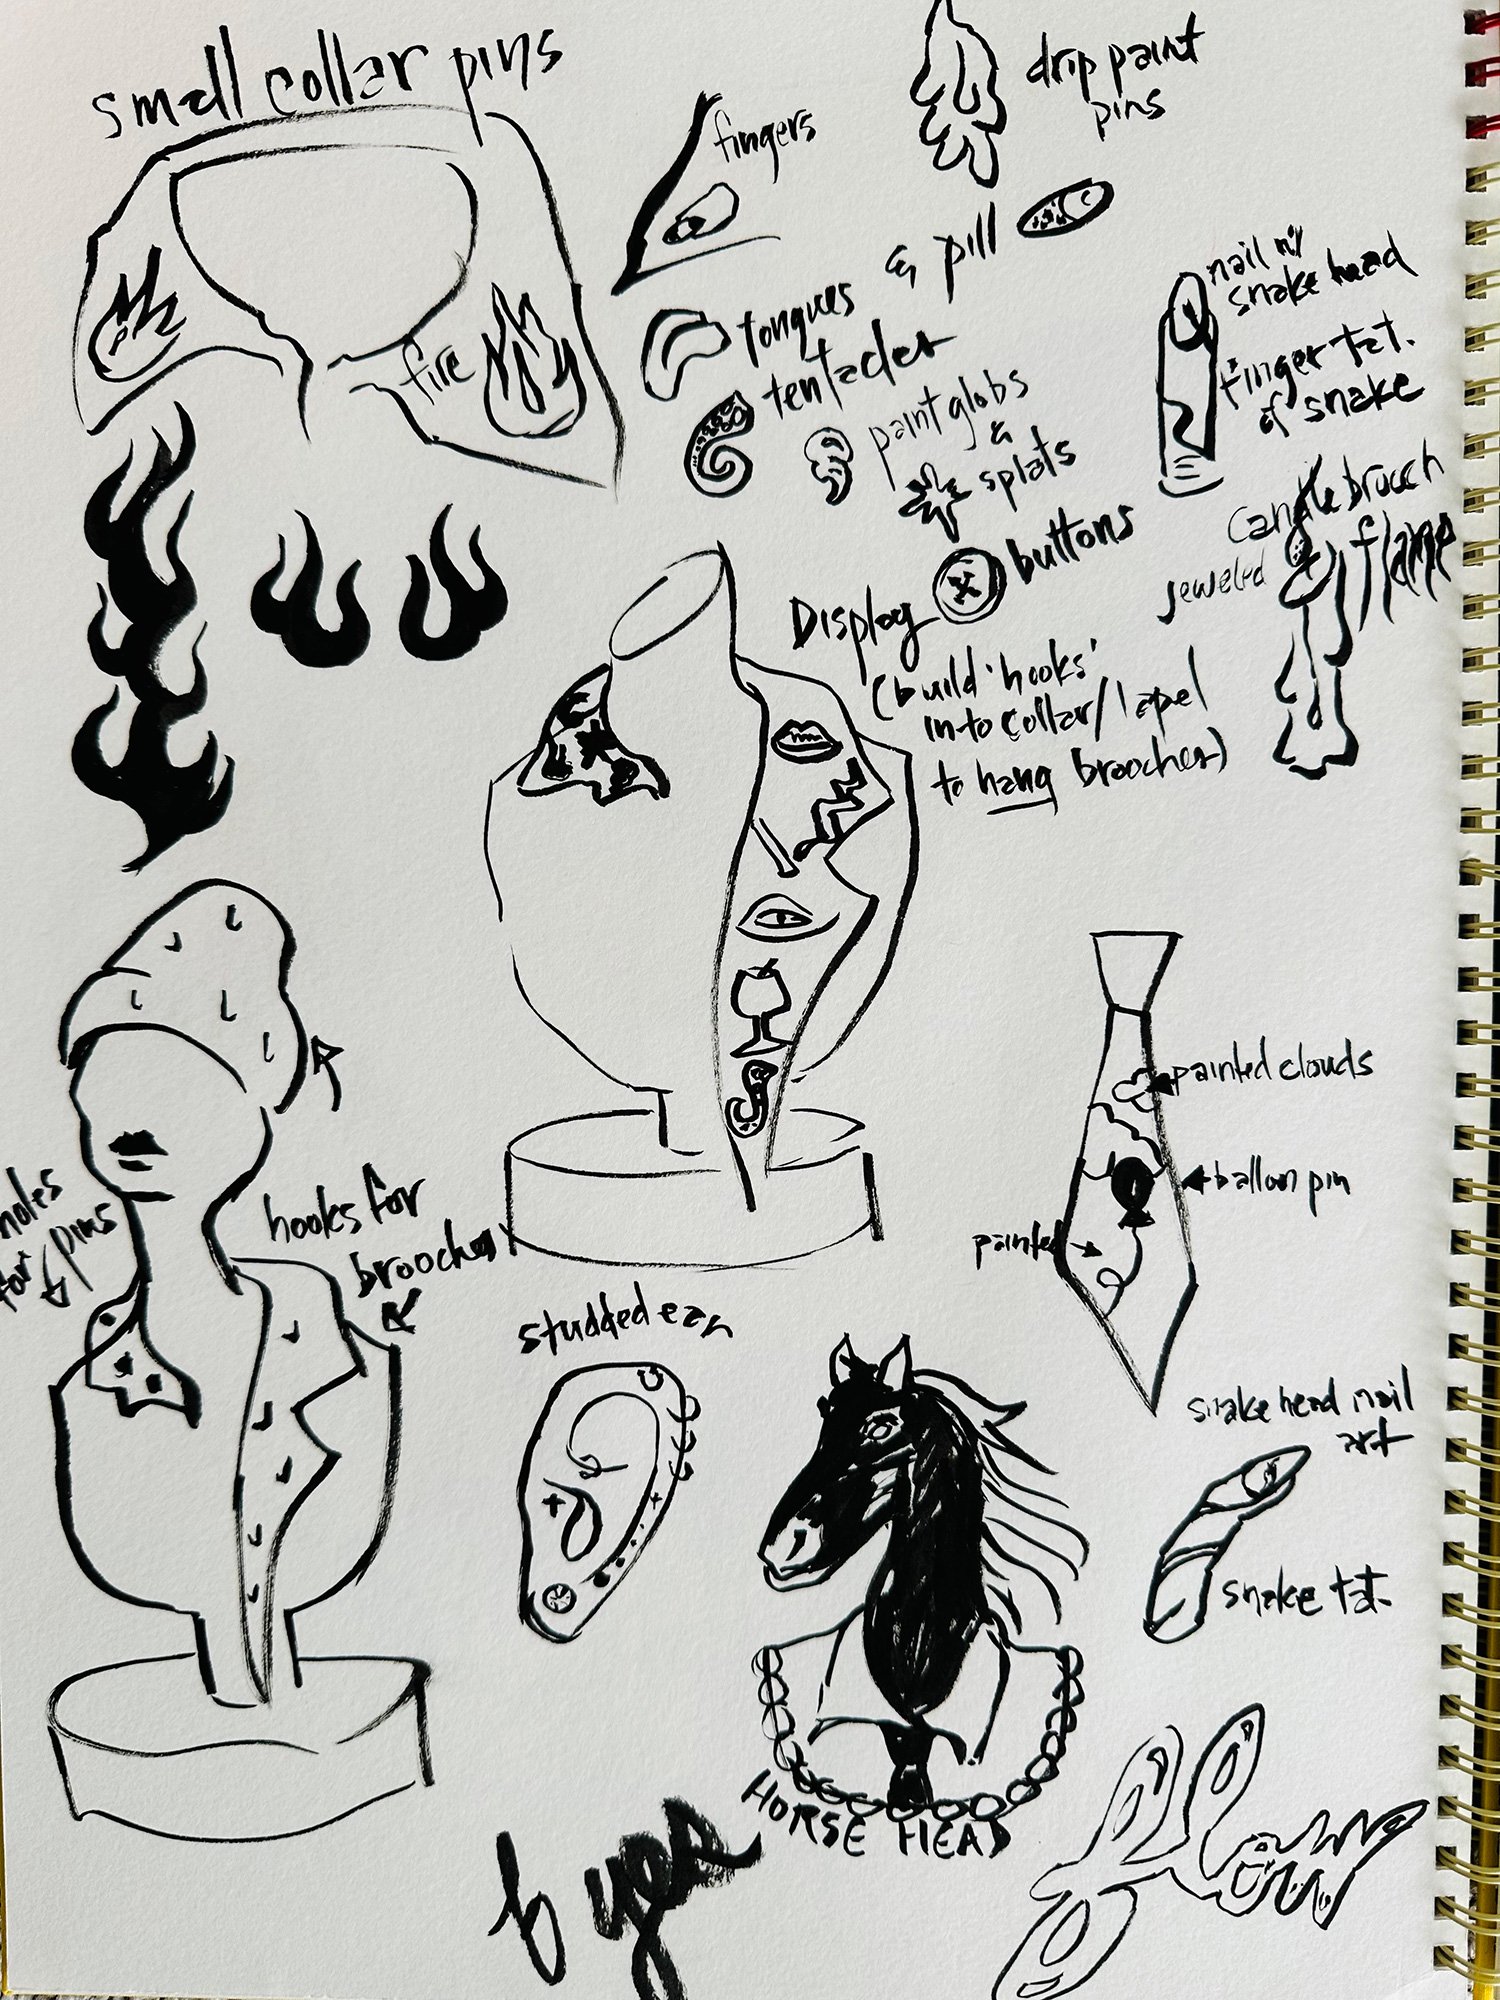 small collar pins
fingers
drip paint
pins
& pill
nail w/
snake head
finger tat.
of snake
tongues
tentacles
fire
paint globs
&
splats
buttons
Candle brooch
jeweled
flame
Display
(build 'hooks'
into collar/lapel
to hang brooches)
painted clouds
ballon pin
painted
holes
for pins
hooks for
brooches
studded ear
snake head nail
art
snake tat.
HORSE HEAD